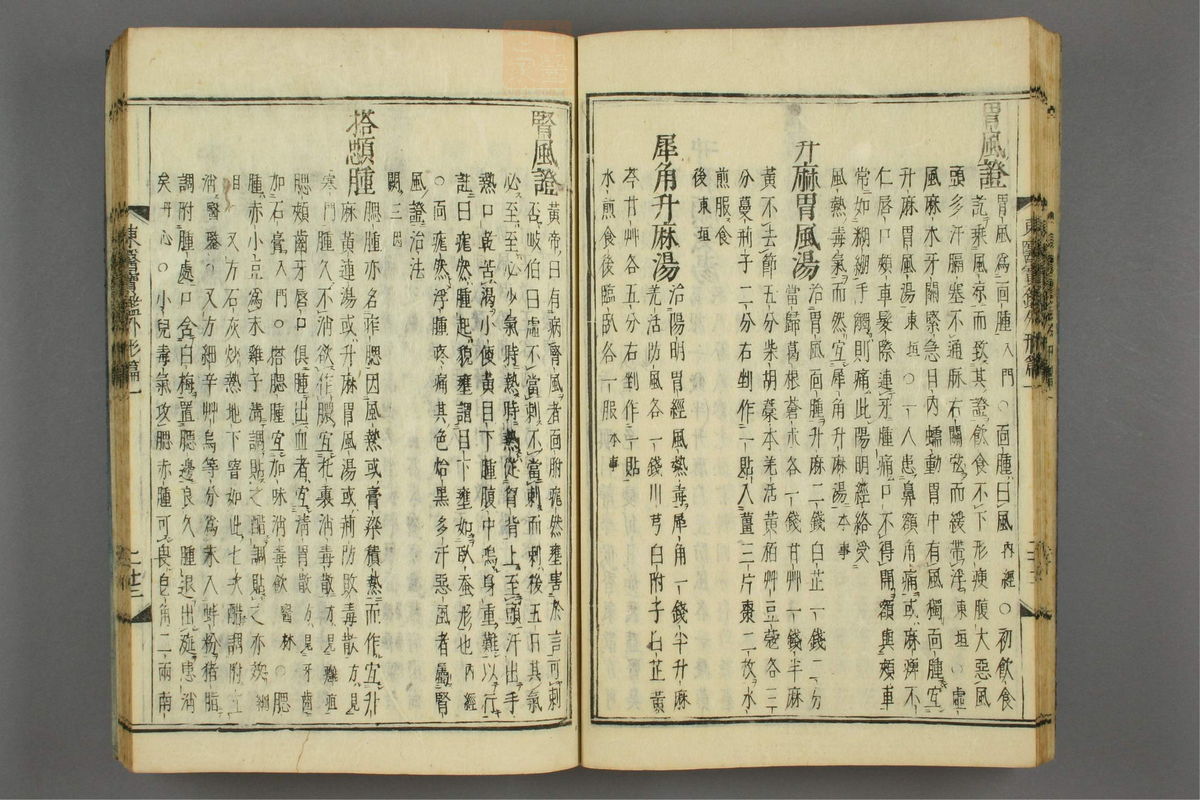 胃風證
胃風爲面腫入門○面腫曰風內經○初飮食
訖乘風凉而致其證飮食不下形瘦腹大惡風
頭多汗膈塞不通脉右關弦而緩帶浮東垣○虛
風麻木牙關緊急目內蠕動胃中有風獨面腫宜
升麻胃風湯東垣○一人患鼻額角痛或麻痺不
仁唇口頰車髮際連牙腫痛口不得開額與頰車
常如糊綳手觸則痛此陽明經絡受
風熱毒氣而然宜犀角升麻湯本事
升麻胃風湯
治胃風面腫升麻二錢白芷一錢二分
當歸葛根蒼朮各一錢甘艸一錢半麻
黃不去節五分柴胡藁本羌活黃栢艸豆蔲各三
分蔓荊子二分右剉作一貼入薑三片棗二枚水
煎服食
後東垣
犀角升麻湯
治陽明胃經風熱毒犀角一錢半升麻
羌活防風各一錢川芎白附子白芷黃
芩甘艸各五分右剉作一貼
水煎食後臨臥各一服本事
東醫寶鑑外形篇一
腎風證
黃帝曰有病腎風者面胕痝然壅害於言可刺
否岐伯曰虛不當刺不當刺而刺後五日其氣
必至至必少氣時熱時熱從胷背上至頭汗出手
熱口乾苦渴小便黃目下腫腹中鳴身重難以行
註曰痝然腫起貌壅謂目下壅如臥蚕形也內經
○面痝然浮腫疼痛其色炲黑多汗惡風者屬腎
風證治法
闕三因
搭顋腫
腮腫亦名痄腮因風熱或膏粱積熱而作宜升
麻黃連湯或升麻胃風湯或荊防敗毒散方見
寒門腫久不消欲作膿宜托裏消毒散方見癰疽
腮頰齒牙唇口俱腫出血者宜淸胃散方見牙齒
加石膏入門○搭腮腫宜加味消毒飮醫林○腮
腫赤小豆爲末雞子淸調貼之醋調貼之亦效綱
目又方石灰炒熱地下窨如此七次醋調附立
消醫鑑○又方細辛艸烏等分爲末入蚌粉猪脂
調附腫處口含白梅置腮邊良久腫退出涎患消
矣丹心○小兒毒氣攻腮赤腫可畏皂角二兩南
東醫寶鑑外形篇一